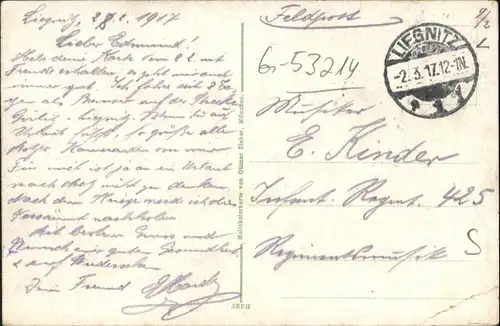 Liegnitz, 28.2. 1917
Lieber Edmund!
Habe deine Karte vom 8.2. mit
Freude erhalten, es geht mir auch
immer gut. Ich fahre seit 8 Ta-
gen als Bremser auf der Strecke
Görlitz - Liegnitz.
Urlaub so grüße alle
Kameraden von mir
Für mich ist ja an ein Urlaub
nach nicht zu denken,
nach dem Kriege werde ich dies
Versäumte nachholen
Mit besten Gruss und
Wunsch auf gute Gesundheit
& auf Wiedersehen
Dein Freund
Feldpost
LIEGNITZ
-2.3.17.12-1N.
61-53214
Musiker
E. Kinder
Infant. Regmt. 425
Regimentsmusik
S
Heliokolorkarte von Ottmar Zieher, München.